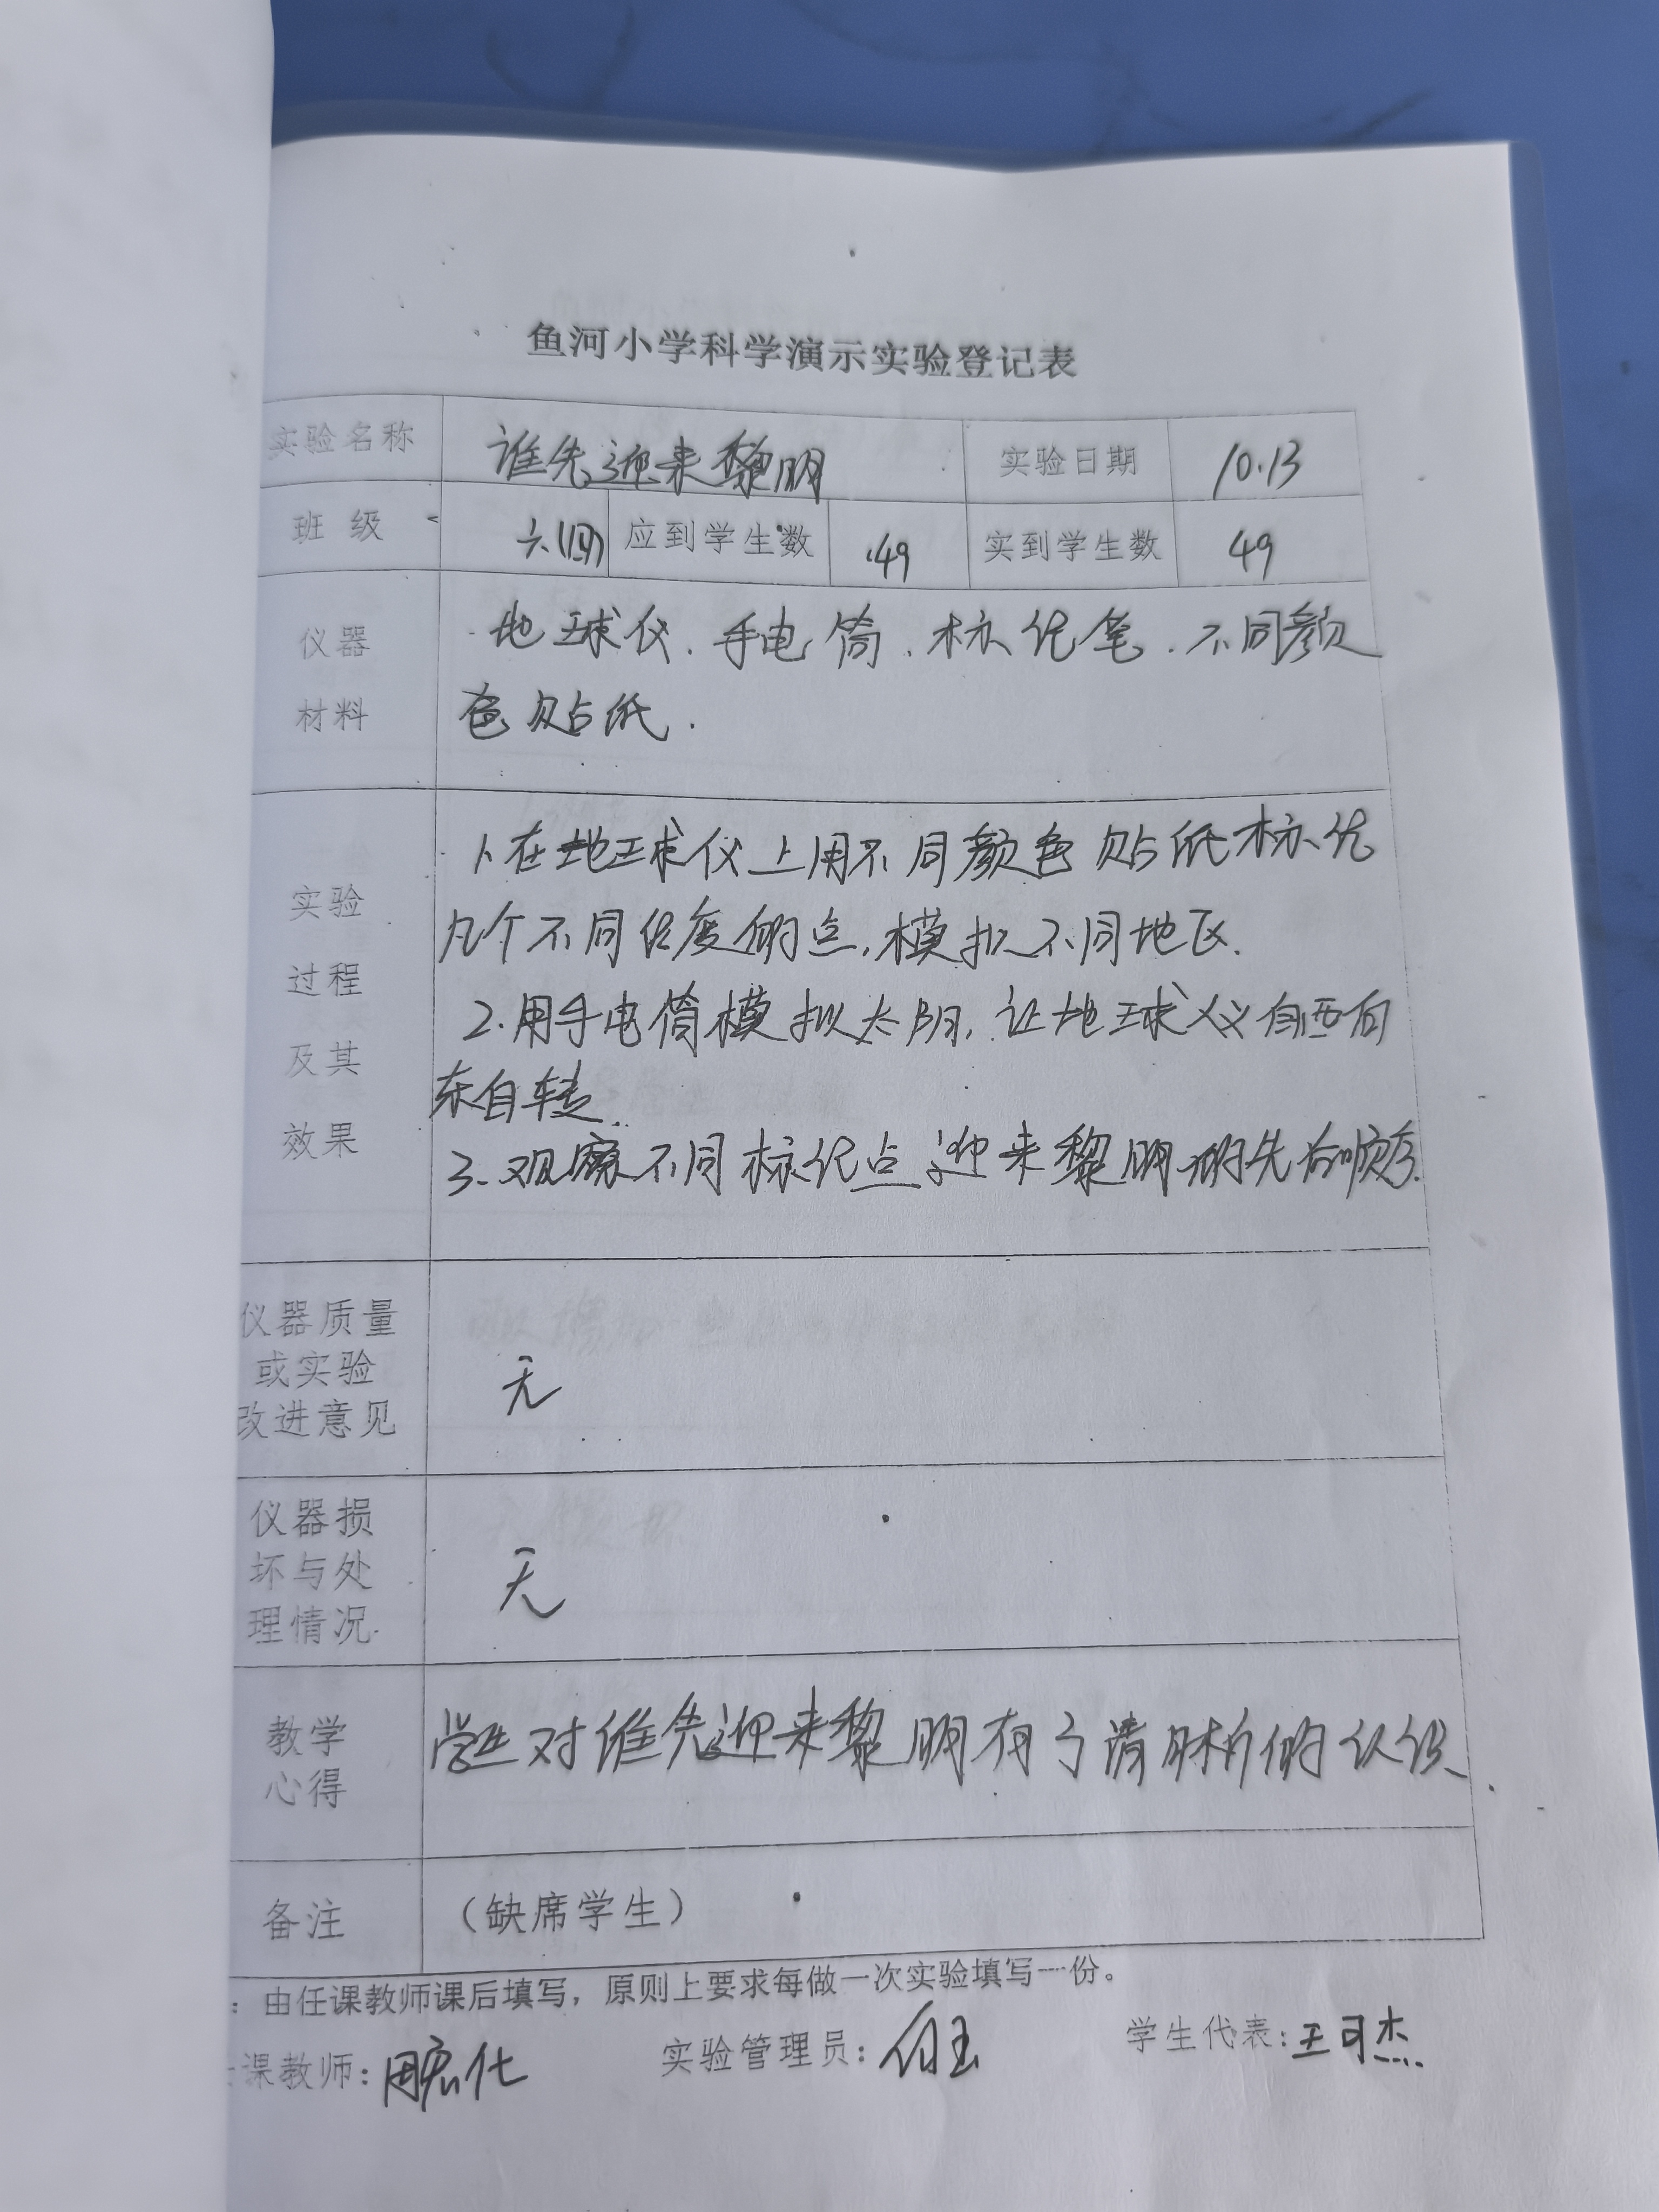 鱼河小学科学演示实验登记表
实验名称 谁先迎来黎明 实验日期 10.13
班 级 六(四) 应到学生数 49 实到学生数 49
仪器 地球仪、手电筒、标记笔、不同颜
材料 色贴纸.
1、在地球仪上用不同颜色贴纸标记
实验
几个不同经度的点,模拟不同地区.
过程
2.用手电筒模拟太阳,让地球仪自西向
及其
东自转.
效果
3、观察不同标记点迎来黎明的先后顺序.
仪器质量
或实验 无
改进意见
仪器损
坏与处 无
理情况
教学 学生对谁先迎来黎明有了清晰的认识.
心得
备注 （缺席学生）
：由任课教师课后填写，原则上要求每做一次实验填写一份。
课教师: 实验管理员: 学生代表:王可杰